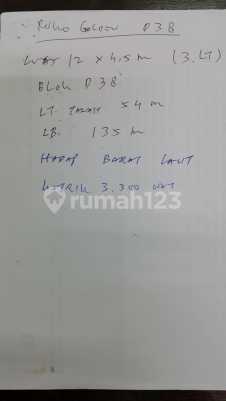 Ruko Golden D38
Luas 12 x 4.5 m (3.LT)
Blok D38
LT. Tanah 54 m
LB. 135 m
Hadap Barat Laut
rumah123
Listrik 3.300 wat